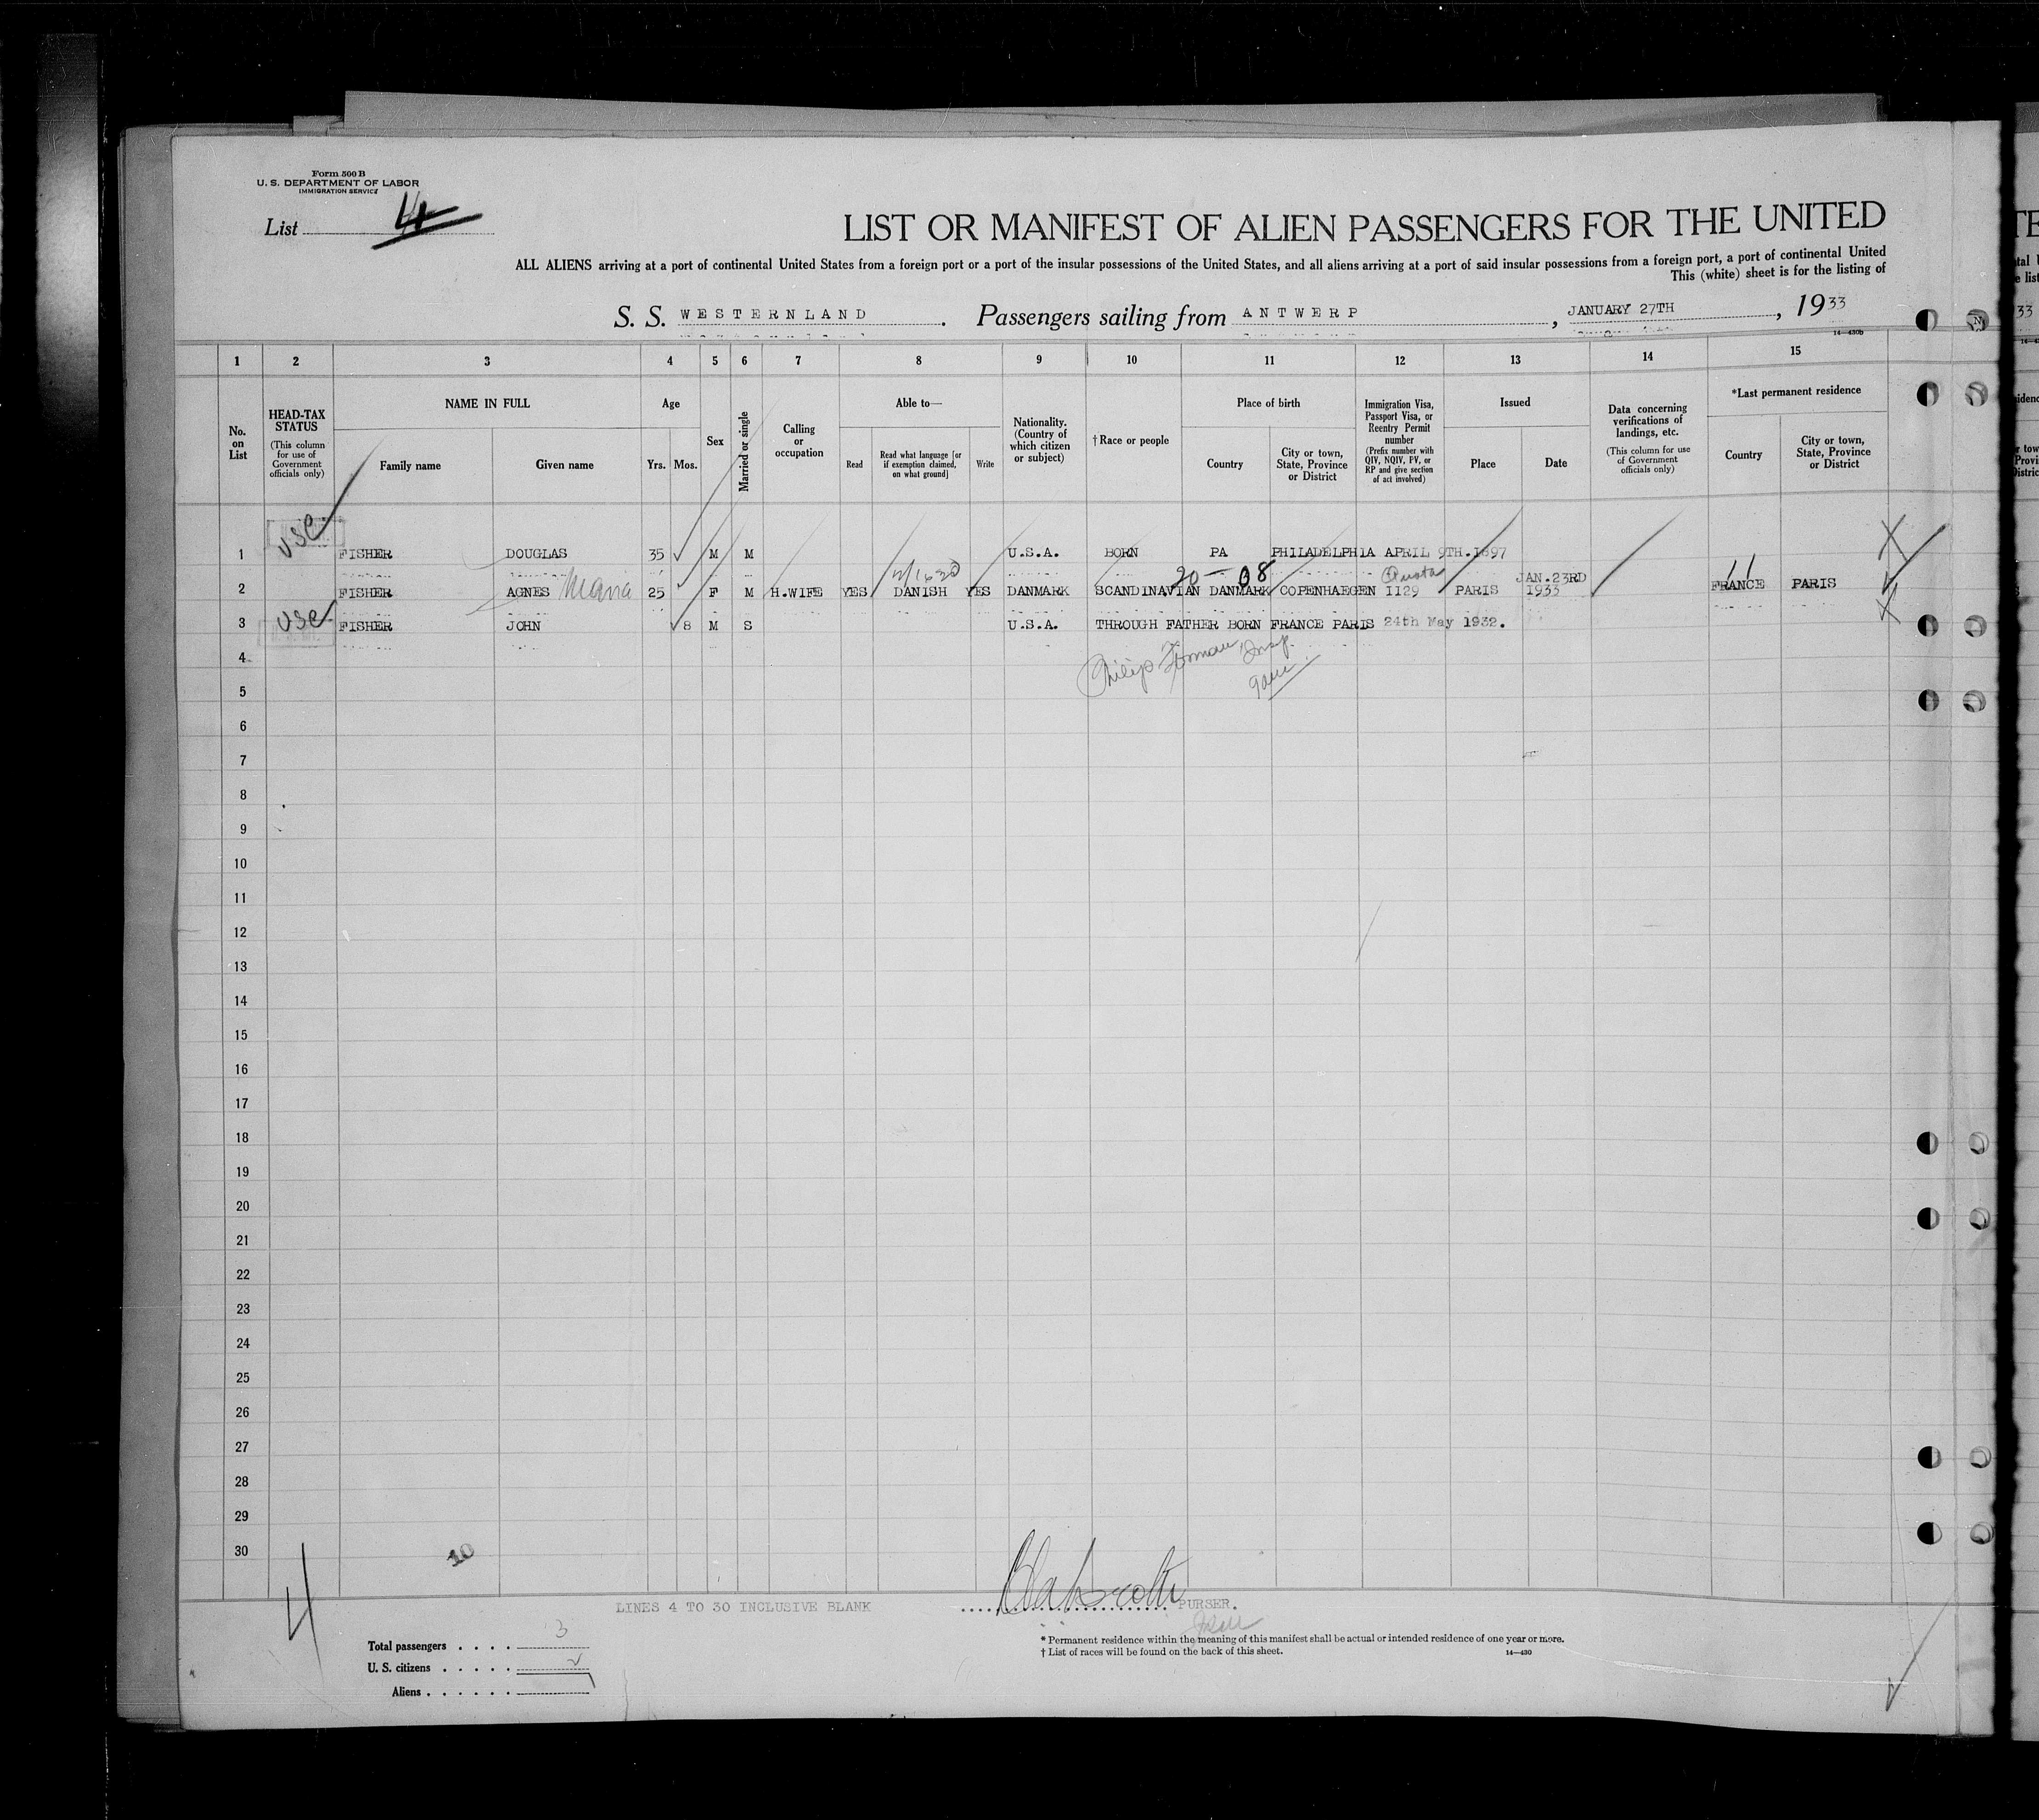 Form 500 B
U. S. DEPARTMENT OF LABOR
IMMIGRATION SERVICE
List 4
LIST OR MANIFEST OF ALIEN PASSENGERS FOR THE UNITED
ALL ALIENS arriving at a port of continental United States from a foreign port or a port of the insular possessions of the United States, and all aliens arriving at a port of said insular possessions from a foreign port, a port of continental United
This (white) sheet is for the listing of
S. S. WESTERNLAND. Passengers sailing from ANTWERP, JANUARY 27TH, 1933
14—430b
1 2 3 4 5 6 7 8 9 10 11 12 13 14 15
No. on List
HEAD-TAX STATUS (This column for use of Government officials only)
NAME IN FULL
Family name
Given name
Age
Yrs. Mos.
Sex
Married or single
Calling or occupation
Able to—
Read
Read what language [or if exemption claimed, on what ground]
Write
Nationality. (Country of which citizen or subject)
†Race or people
Place of birth
Country
City or town, State, Province or District
Immigration Visa, Passport Visa, or Reentry Permit number (Prefix number with QIV, NQIV, PV, or RP and give section of act involved)
Issued
Place
Date
Data concerning verifications of landings, etc. (This column for use of Government officials only)
*Last permanent residence
Country
City or town, State, Province or District
1 USC FISHER DOUGLAS 35 M M U.S.A. BORN PA PHILADELPHIA APRIL 9TH.1897
20 — 08 Quota
2 FISHER AGNES Maria 25 F M H.WIFE YES DANISH YES DANMARK SCANDINAVIAN DANMARK COPENHAEGEN 1129 PARIS JAN.23RD 1933 FRANCE PARIS
3 USC FISHER JOHN 8 M S U.S.A. THROUGH FATHER BORN FRANCE PARIS 24th May 1932.
Philip Forman, Insp.
4
5
6
7
8
9
10
11
12
13
14
15
16
17
18
19
20
21
22
23
24
25
26
27
28
29
30
10
4
LINES 4 TO 30 INCLUSIVE BLANK
PURSER.
Total passengers . . . . 3
U. S. citizens . . . . . 2
Aliens . . . . . . 1
* Permanent residence within the meaning of this manifest shall be actual or intended residence of one year or more.
† List of races will be found on the back of this sheet.
14—430